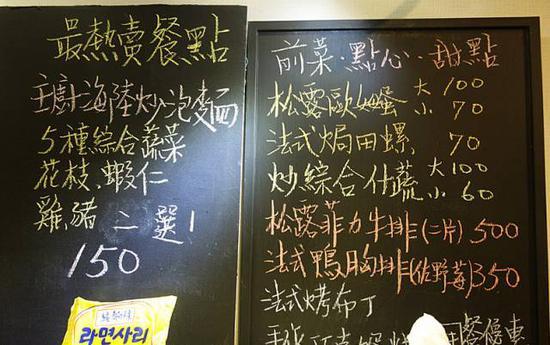 最熱賣餐點
主廚海陸炒泡麵
5種綜合蔬菜
花枝、蝦仁
雞豬 二選1
150
라면사리
前菜·點心·甜點
松露歐姆蛋 大100
小 70
法式焗田螺 70
炒綜合什蔬 大100
小60
松露菲力牛排(二片) 500
法式鴨胸排(佐野莓) 350
法式烤布丁